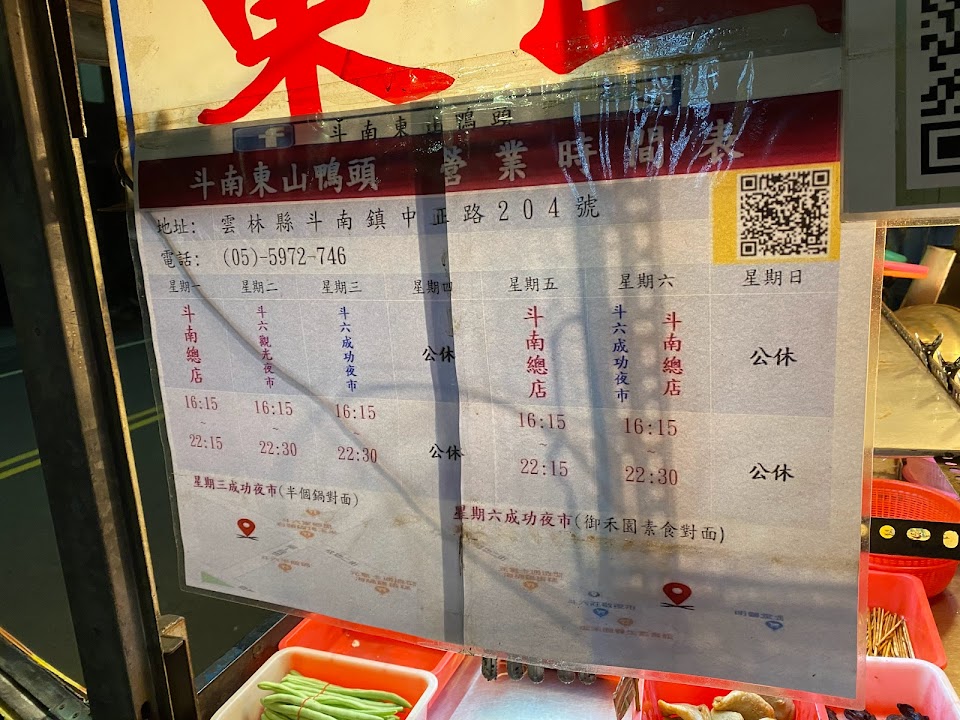 東山
f 斗南東山鴨頭
斗南東山鴨頭 營業時間表
地址: 雲林縣斗南鎮中正路204號
電話: (05)-5972-746
星期一 星期二 星期三 星期四 星期五 星期六 星期日
斗南總店 斗六觀光夜市 斗六成功夜市 公休 斗南總店 斗六成功夜市 斗南總店 公休
16:15 16:15 16:15 公休 16:15 16:15 公休
~ ~ ~ ~ ~
22:15 22:30 22:30 22:15 22:30
星期三成功夜市(半個鍋對面)
星期六成功夜市(御禾園素食對面)